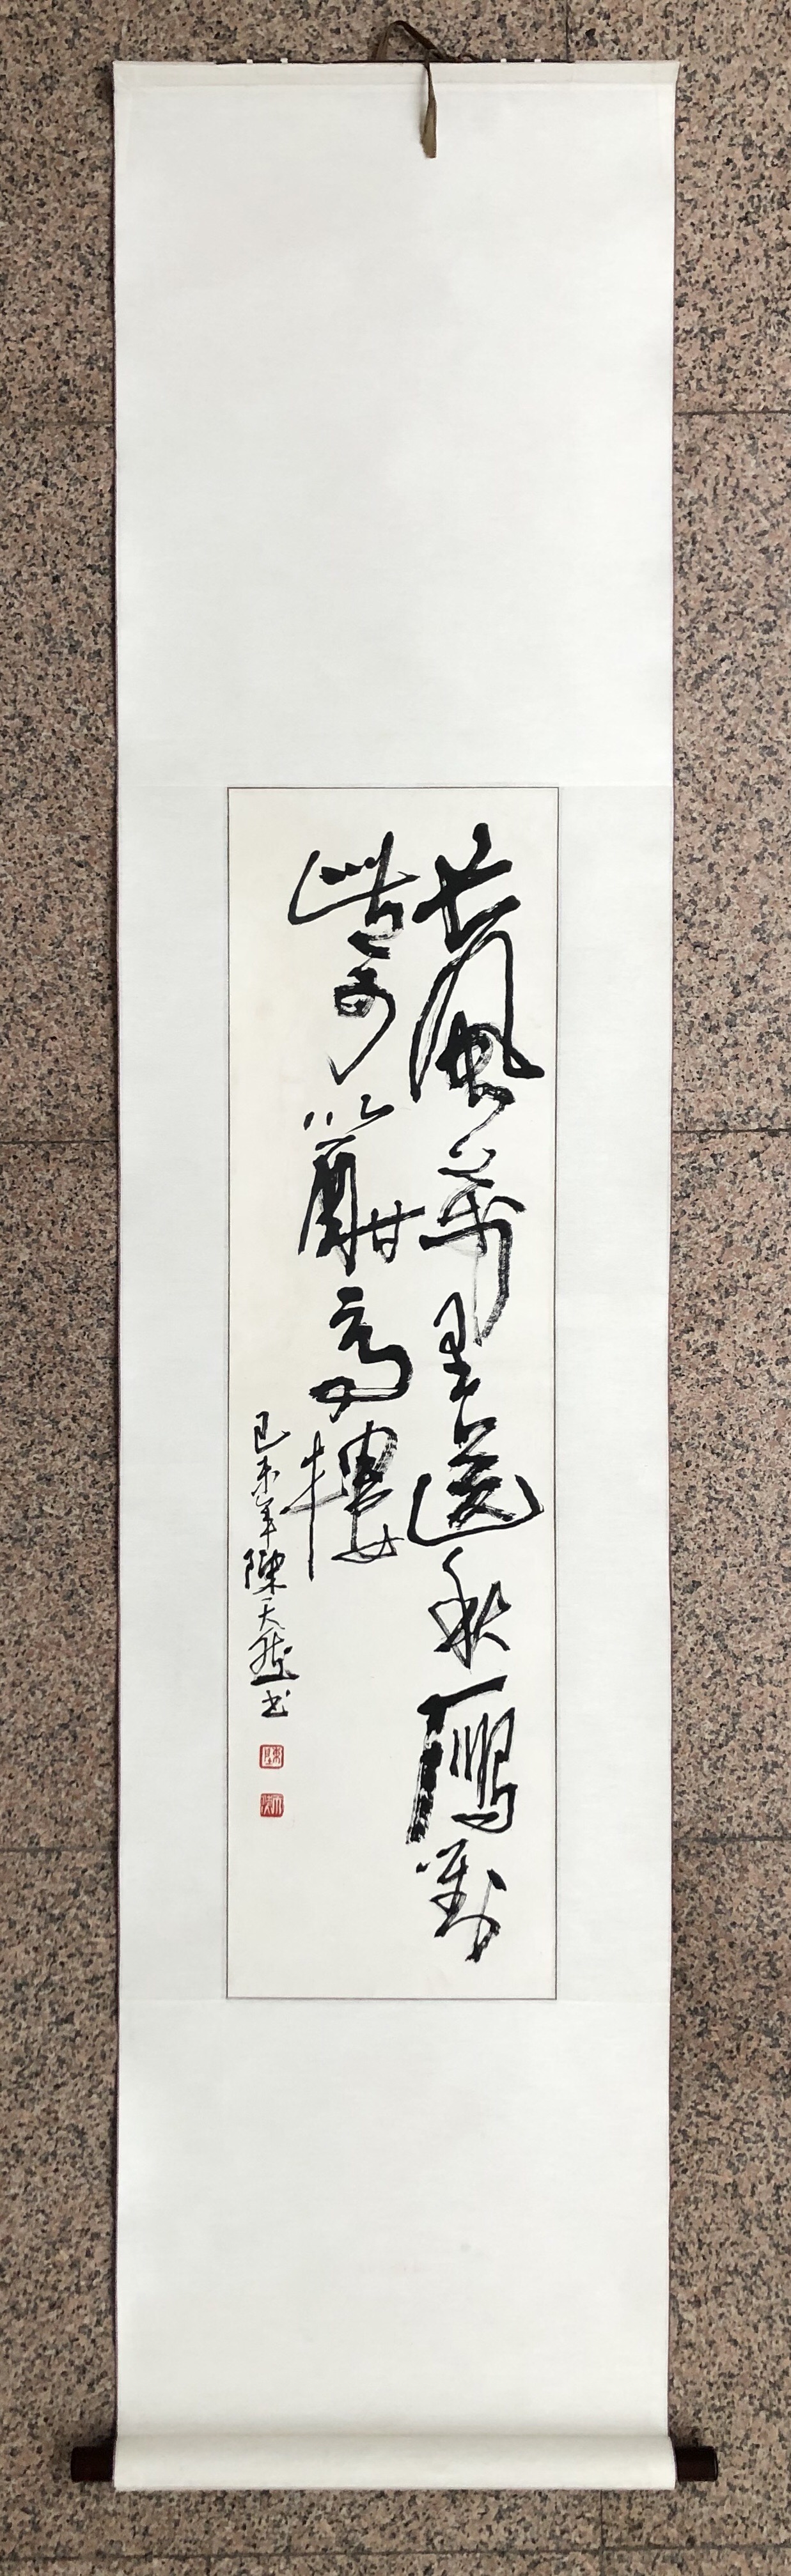 長風萬里送秋雁對
此可以酣高樓
己未年陳天然書